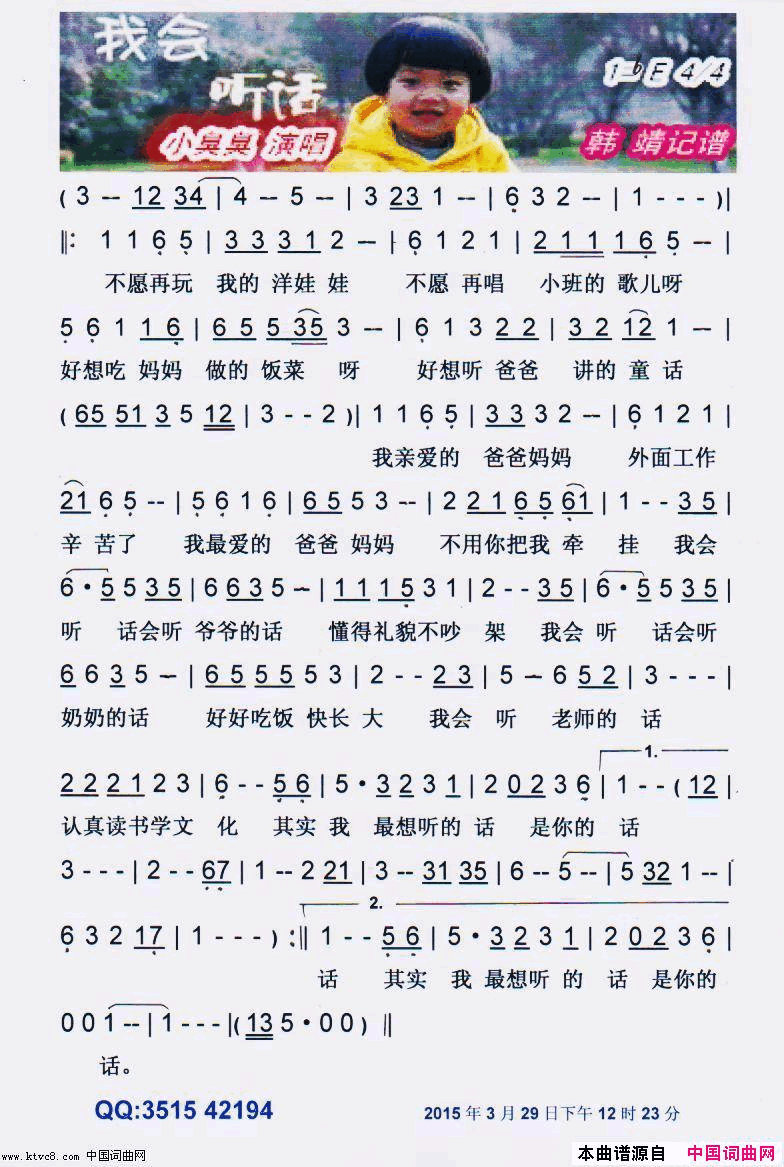 我会
听话
1=bE 4/4
小臭臭 演唱
韩 靖记谱
( 3 -- 12 34 | 4 - 5 -- | 3 23 1 -- | 6 3 2 -- | 1 - - - )|
‖: 1 1 6 5 | 3 3 3 1 2 -- | 6 1 2 1 | 2 1 1 1 6 5 -- |
不愿再玩 我的 洋娃 娃 不愿 再唱 小班的 歌儿呀
5 6 1 1 6 | 6 5 5 35 3 -- | 6 1 3 2 2 | 3 2 12 1 -- |
好想吃 妈妈 做的 饭菜 呀 好想听 爸爸 讲的 童 话
( 65 51 3 5 12 | 3 - - 2 )| 1 1 6 5 | 3 3 3 2 -- | 6 1 2 1 |
我亲爱的 爸爸妈妈 外面工作
21 6 5 -- | 5 6 1 6 | 6 5 5 3 -- | 2 2 1 6 5 61 | 1 - - 3 5 |
辛 苦了 我最爱的 爸爸 妈妈 不用你把我 牵 挂 我会
6 · 5 5 3 5 | 6 6 3 5 -- | 1 1 1 5 3 1 | 2 - - 3 5 | 6 · 5 5 3 5 |
听 话会听 爷爷的话 懂得礼貌不吵 架 我会 听 话会听
6 6 3 5 -- | 6 5 5 5 3 5 | 2 - - 2 3 | 5 -- 6 5 2 | 3 - - - |
奶奶的话 好好吃饭 快长 大 我会 听 老师的 话
2 2 2 1 2 3 | 6 - - 5 6 | 5 · 3 2 3 1 | 2 0 2 3 6 | 1. 1 - - ( 12 |
认真读书学文 化 其实 我 最想听的 话 是你的 话
3 - - - | 2 - - 67 | 1 -- 2 21 | 3 -- 31 35 | 6 -- 5 -- | 5 32 1 -- |
6 3 2 17 | 1 - - - ) :‖ 2. 1 - - 5 6 | 5 · 3 2 3 1 | 2 0 2 3 6 |
话 其实 我 最想听 的 话 是你的
0 0 1 -- | 1 - - - |( 13 5 · 0 0 ) ‖
话。
QQ:3515 42194
2015 年 3 月 29 日下午 12 时 23 分
www.ktvc8.com 中国词曲网
本曲谱源自 中国词曲网